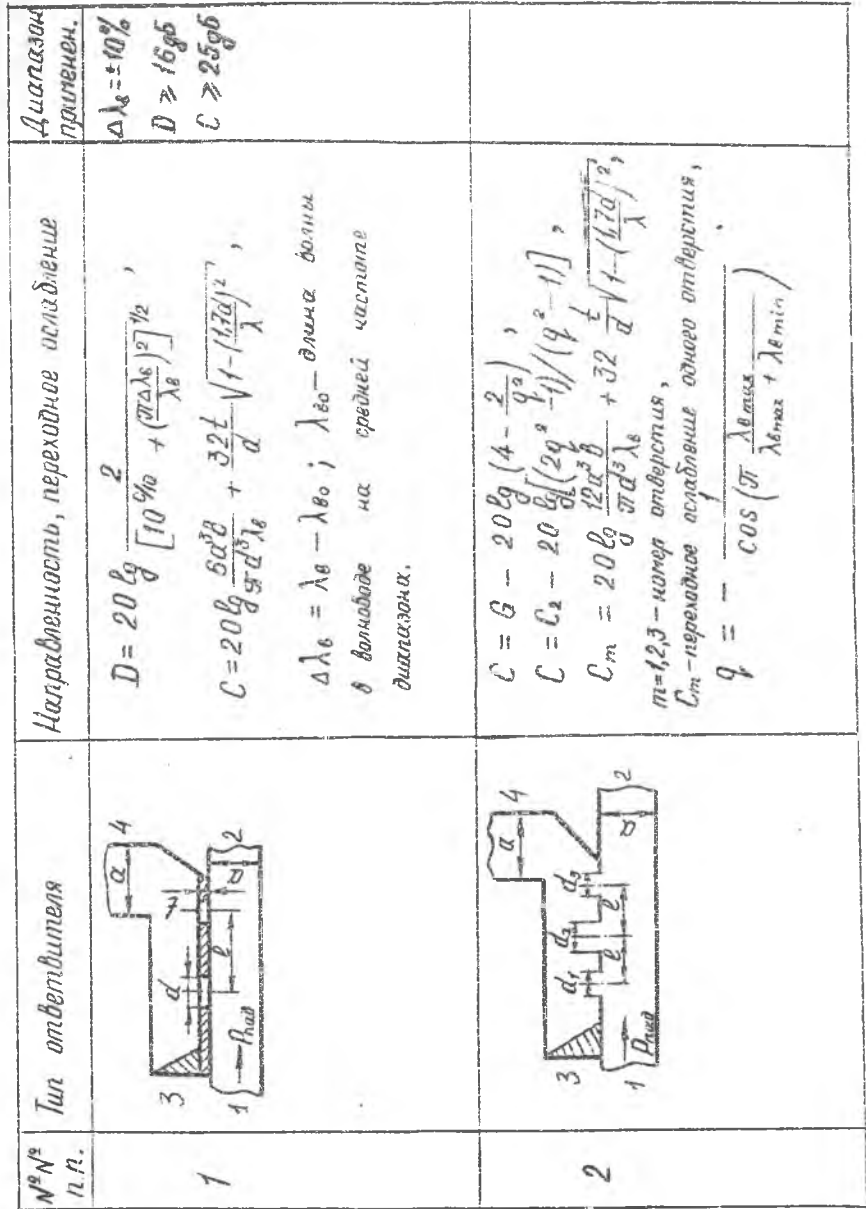 №№ п.п.
Тип ответвителя
Направленность, переходное ослабление
Диапазон применен.
1
a
4
d
t
3
l
b
2
1
Pпад
D = 20 lg 2 / [10^(C/10) + (πΔλв/λв)²]^1/2 ,
C = 20 lg 6a³b / πd³λв + 32t/d √(1-(1,7d/λ)²) ,
Δλв = λв — λво ; λво — длина волны
в волноводе на средней частоте
диапазона.
Δλв = ±10%
D ⩾ 16дб
C ⩾ 25дб
2
a
4
d₁
d₂
d₃
3
l
l
b
2
1
Pпад
C = C₁ — 20 lg (4 - 2/q²) ,
C = C₂ — 20 lg[(2q² -1)/(q² -1)] ,
Cm = 20 lg 12a³b / πd³λв + 32 t/d √(1-(1,7d/λ)²) ,
m=1,2,3 — номер отверстия ,
Cm - переходное ослабление одного отверстия ,
q = — 1 / cos(π λв max / λв max + λв min) .